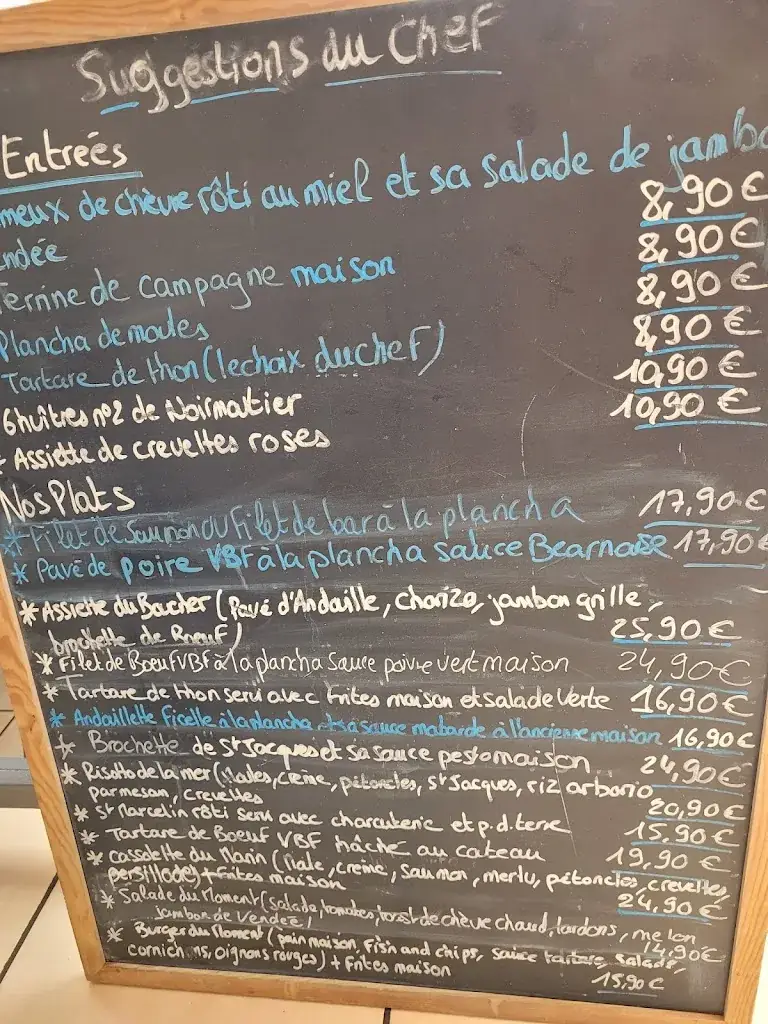 Suggestions du Chef
Entreés
meux de chèvre rôti au miel et sa salade de jambo
8,90 €
endée
8,90 €
Terrine de campagne maison
8,90 €
Plancha de moules
8,90 €
Tartare de thon (lechoix du chef)
10,90 €
6 huîtres n°2 de Noirmoutier
10,90 €
- Assiette de crevettes roses
Nos Plats
* Filet de Saumon ou Filet de bar à la plancha 17,90 €
* Pavé de poire VBF à la plancha sauce Bearnaise 17,90 €
* Assiette du Boucher (Pavé d'Andouille, chorizo, jambon grille,
brochette de Boeuf) 25,90 €
* Filet de Boeuf VBF à la plancha sauce poivre vert maison 24,90 €
* Tartare de thon servi avec frites maison et salade verte 16,90 €
* Andouillette ficelle à la plancha et sa sauce moutarde à l'ancienne maison 16,90 €
* Brochette de St Jacques et sa sauce pesto maison 24,90 €
* Risotto de la mer (Moules, crème, pétoncles, St Jacques, riz arborio,
parmesan, crevettes 20,90 €
* St Marcelin rôti servi avec charcuterie et p.d.terre 15,90 €
* Tartare de Boeuf VBF hâché au couteau 19,90 €
* cassolette du Marin (Moule, crème, saumon, merlu, pétoncles, crevettes,
persillade) + frites maison 24,90 €
* Salade du Moment (salade, tomates, toast de chèvre chaud, lardons, melon
jambon de Vendée) 14,90 €
* Burger du Moment (pain maison, Fish and chips, sauce tartare, salade,
cornichons, oignons rouges) + Frites maison 15,90 €